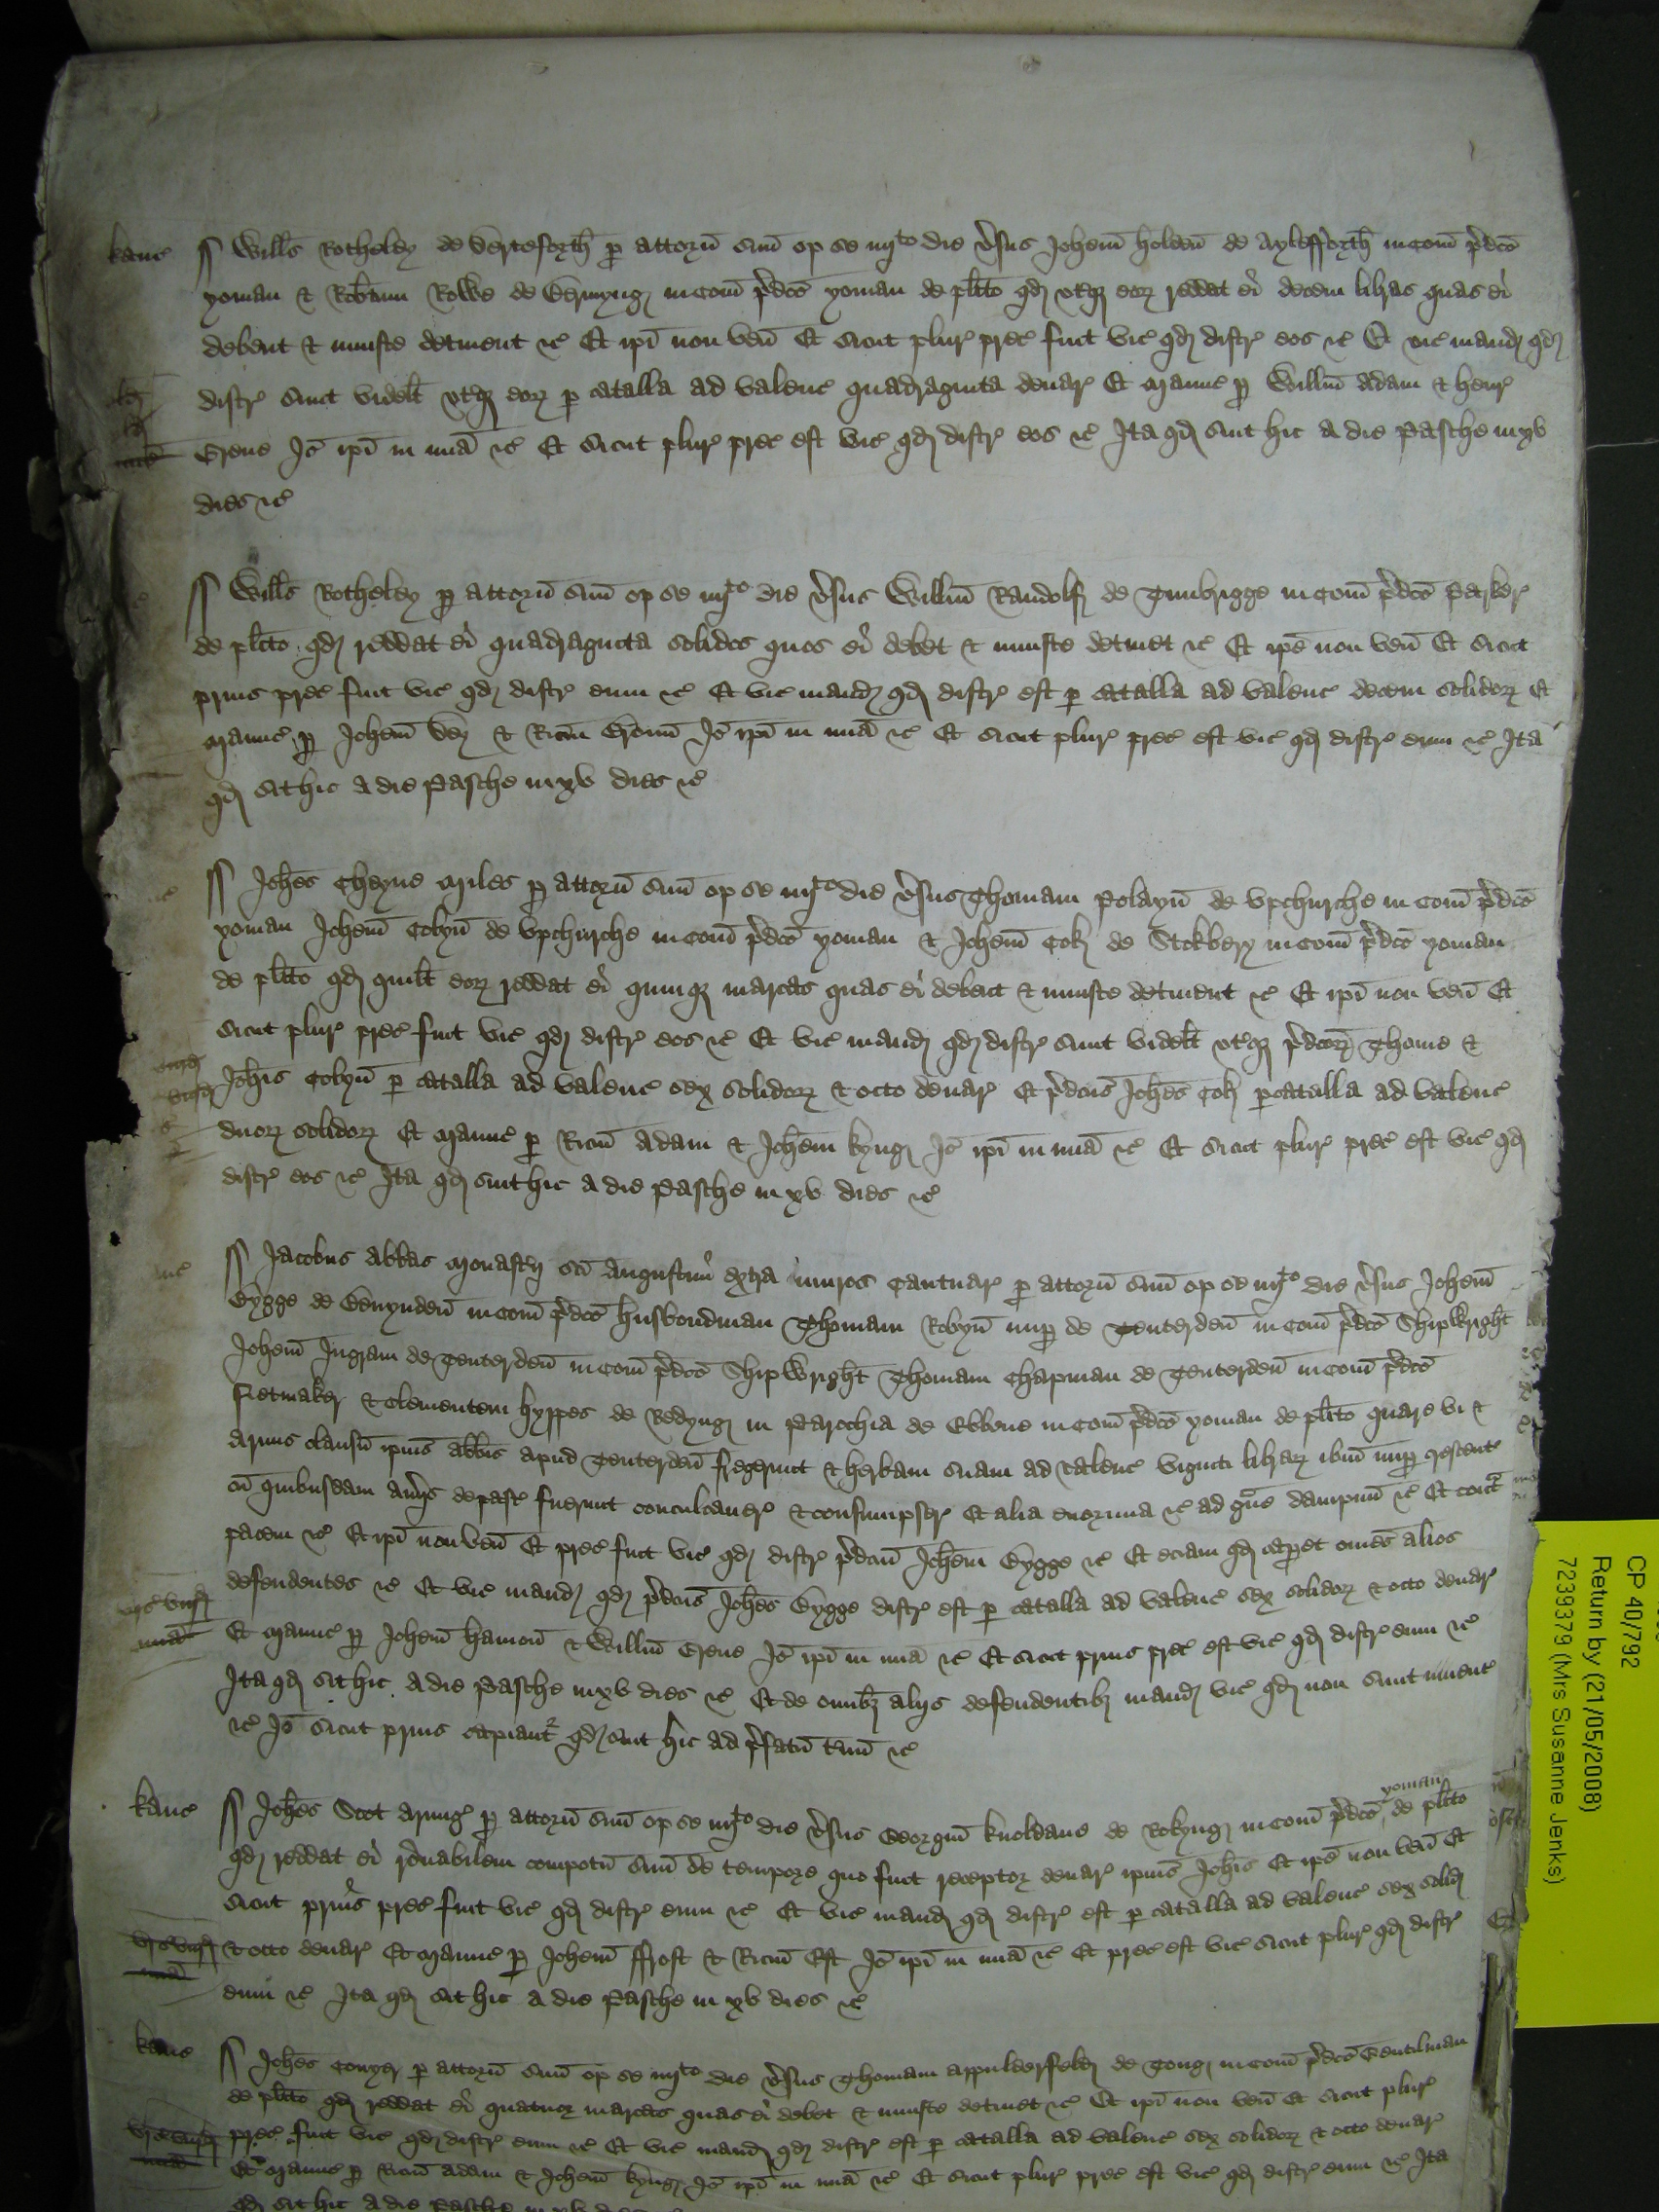 kanc ¶ Wills Rotheley de Derteforth p attorn suu op se iiijto die vsus Johem Holden de Aylesfforth in com pdco
yoman & Robtum Rowe de Bermyng in com pdco yoman de plito qd utq eor reddat ei decem libras quas ei
debent & iniuste detinent &c Et ipi non ven Et sicut plur prec fuit vic qd distr eos &c Et vic mand qd
distr sunt videlt utq eor p catalla ad valenc quadraginta denar Et Manuc p Willm Adam & Henr
Grene Io ipi in mia &c Et sicut plur prec est vic qd distr eos &c Ita qd sint hic a die Pasche in xv
dies &c
¶ Wills Rotheley p attorn suu op se iiijto die vsus Willm Randolf de Tunbrigge in com pdco Barker
de plito qd reddat ei quadraginta solidos quos ei debet & iniuste detinet &c Et ipe non ven Et sicut
prius prec fuit vic qd distr eum &c Et vic mand qd distr est p catalla ad valenc decem solidor Et
Manuc p Johem Dey & Ricm Gromi Io ipi in mia &c Et sicut plur prec est vic qd distr eum &c Ita
qd sit hic a die Pasche in xv dies &c
¶ Johes Cheyne Miles p attorn suu op se iiijto die vsus Thomam Polayn de Upchurche in com pdco
yoman Johem Cobyn de Upchurche in com pdco yoman & Johem Cok de Stokbery in com pdco yoman
de plito qd quilt eor reddat ei quinq marcas quas ei debent & iniuste detinent &c Et ipi non ven Et
sicut plur prec fuit vic qd distr eos &c Et vic mand qd distr sunt videlt utq pdcor Thome &
Johis Cobyn p catalla ad valenc sex solidor & octo denar Et pdcus Johes Cok p catalla ad valenc
duor solidor Et Manuc p Ricm Adam & Johem Kyng Io ipi in mia &c Et sicut plur prec est vic qd
distr eos &c Ita qd sint hic a die Pasche in xv dies &c
¶ Jacobus Abbas Monastij sci Augustini extra muros Cantuar p attorn suu op se iiijto die vsus Johem
Gygge de Benynden in com pdco husbondman Thomam Robyn nup de Tenterden in com pdco Shipwright
Johem Ingram de Tenterden in com pdco Shipwright Thomam Chapman de Tenterden in com pdco
& Clementem Hyppes de Redyng in Parochia de Ebbene in com pdco yoman de plito quare vi &
armis clausu ipius Abbis apud Tenterden fregerunt & herbam suam ad valenc viginti librar ibm nup crescente
cu quibusdam aviis depast fuerunt conculcaver & consumpser Et alia enormia &c ad gave dampnu &c Et contra
pacem &c Et ipi non ven Et prec fuit vic qd distr pdcm Johem Gygge &c Et eciam qd capet omes alios
defendentes &c Et vic mand qd pdcus Johes Gygge distr est p catalla ad valenc sex solidor & octo denar
Et Manuc p Johem Hamon & Willm Grene Io ipi in mia &c Et sicut prius prec est vic qd distr eum &c
Ita qd sit hic a die Pasche in xv dies &c Et de omib aliis defendentib mand vic qd non sunt invent
&c Io sicut prius capiant qd sint hic ad pfatu tminu &c
kanc ¶ Johes Scot Armig p attorn suu op se iiijto die vsus Georgiu Knoldane de Rokyng in com pdco yoman de plito
qd reddat ei ronabilem compotu suu de tempore quo fuit receptor denar ipius Johis Et ipe non ven Et
sicut prius prec fuit vic qd distr eum &c Et vic mand qd distr est p catalla ad valenc sex solid
& octo denar Et Manuc p Johem ffrost & Ricm Est Io ipi in mia &c Et prec est vic sicut plur qd distr
eum &c Ita qd sit hic a die Pasche in xv dies &c
kanc ¶ Johes Conyer p attorn suu op se iiijto die vsus Thomam Appulderfeld de Tong in com pdco Gentilman
de plito qd reddat ei quatuor marcas quas ei debet & iniuste detinet &c Et ipi non ven Et sicut plur
prec fuit vic qd distr eum &c Et vic mand qd distr est p catalla ad valenc sex solidor & octo denar
Et Manuc p Ricm Adam & Johem Kyng Io ipi in mia &c Et sicut plur prec est vic qd distr eum &c Ita
qd sit hic a die Pasche in xv
CP 40/792
Return by (21/05/2008)
7239379 (Mrs Susanne Jenks)